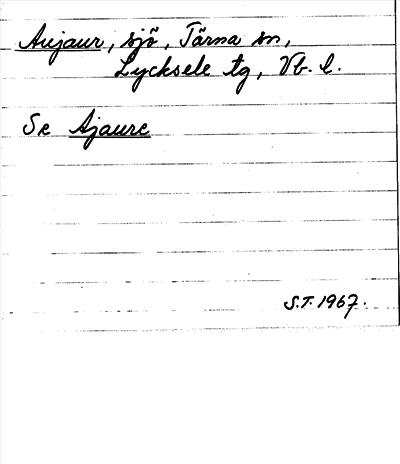 Aiejaur, sjö, Tärna sn,
Lycksele tg, Vb. l.
Se Ajaure
S.T. 1967.